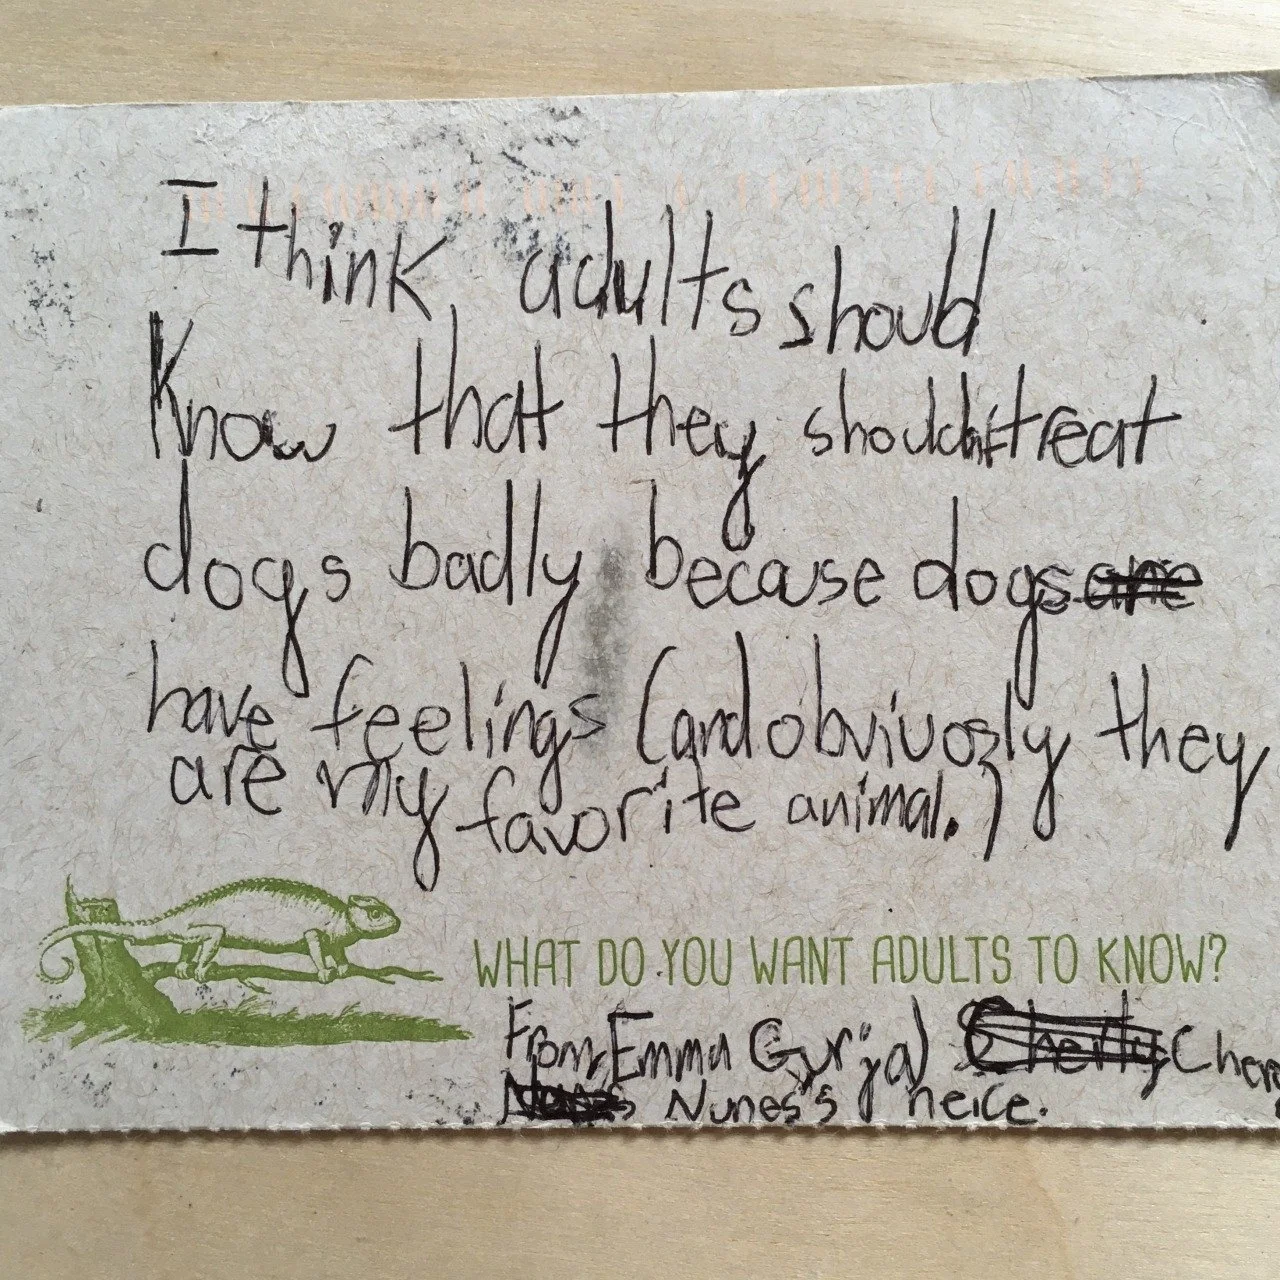 I think adults should
Know that they shouldn't treat
dogs badly because dogs are
have feelings (and obviuosly they
are my favorite animal.)
WHAT DO YOU WANT ADULTS TO KNOW?
From, Emma
Nunes's neice.